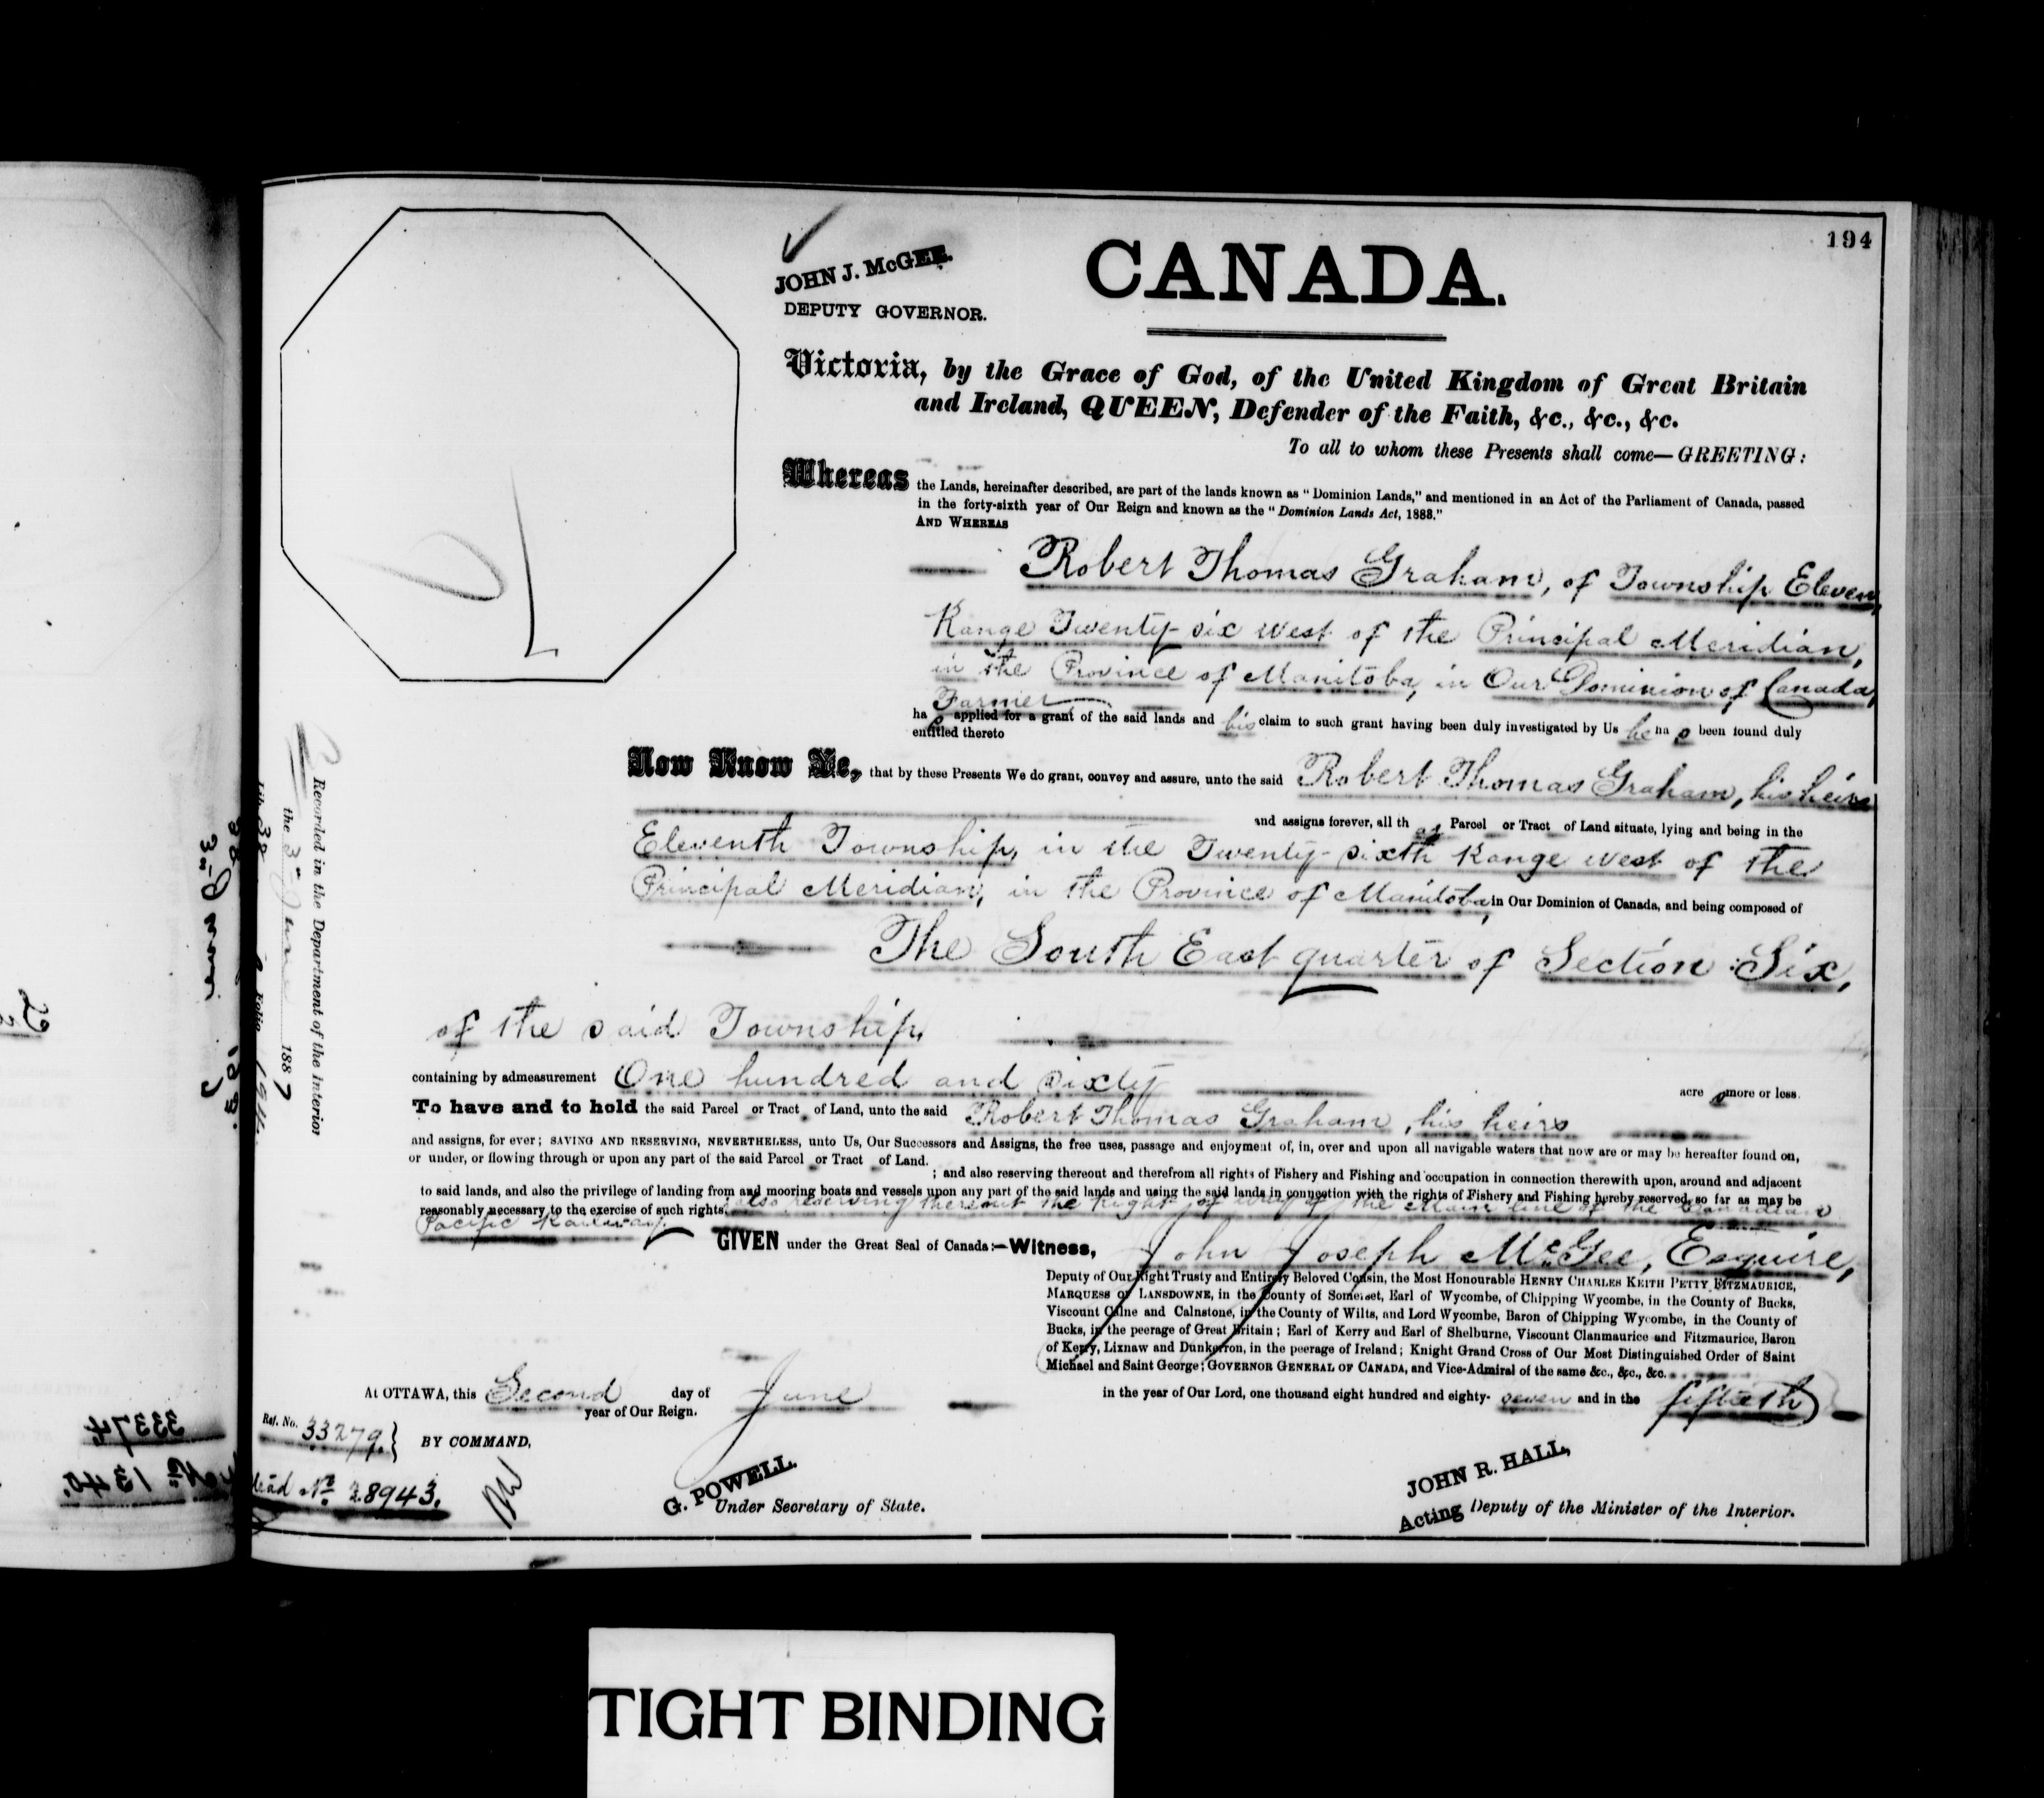 194
JOHN J. McGEE.
DEPUTY GOVERNOR.
CANADA.
Victoria, by the Grace of God, of the United Kingdom of Great Britain
and Ireland, QUEEN, Defender of the Faith, &c., &c., &c.
To all to whom these Presents shall come—GREETING:
Whereas the Lands, hereinafter described, are part of the lands known as "Dominion Lands," and mentioned in an Act of the Parliament of Canada, passed
in the forty-sixth year of Our Reign and known as the "Dominion Lands Act, 1883."
AND WHEREAS
Robert Thomas Graham, of Township Eleven,
Range Twenty-six West of the Principal Meridian,
in the Province of Manitoba, in Our Dominion of Canada,
Farmer
has applied for a grant of the said lands and his claim to such grant having been duly investigated by Us he has been found duly
entitled thereto
Now Know Ye, that by these Presents We do grant, convey and assure, unto the said Robert Thomas Graham, his heirs
and assigns forever, all that Parcel or Tract of Land situate, lying and being in the
Eleventh Township, in the Twenty-sixth Range West of the
Principal Meridian, in the Province of Manitoba, in Our Dominion of Canada, and being composed of
The South East quarter of Section Six,
of the said Township,
containing by admeasurement One hundred and sixty acres more or less.
To have and to hold the said Parcel or Tract of Land, unto the said Robert Thomas Graham, his heirs
and assigns, for ever; SAVING AND RESERVING, NEVERTHELESS, unto Us, Our Successors and Assigns, the free uses, passage and enjoyment of, in, over and upon all navigable waters that now are or may be hereafter found on,
or under, or flowing through or upon any part of the said Parcel or Tract of Land.
; and also reserving thereout and therefrom all rights of Fishery and Fishing and occupation in connection therewith upon, around and adjacent
to said lands, and also the privilege of landing from and mooring boats and vessels upon any part of the said lands and using the said lands in connection with the rights of Fishery and Fishing hereby reserved, so far as may be
reasonably necessary to the exercise of such rights; also reserving thereout the Right of way of the Main line of the Canadian
Pacific Railway.
GIVEN under the Great Seal of Canada:—Witness, John Joseph McGee, Esquire,
Deputy of Our Right Trusty and Entirely Beloved Cousin, the Most Honourable HENRY CHARLES KEITH PETTY FITZMAURICE,
MARQUESS OF LANSDOWNE, in the County of Somerset, Earl of Wycombe, of Chipping Wycombe, in the County of Bucks,
Viscount Calne and Calnstone, in the County of Wilts, and Lord Wycombe, Baron of Chipping Wycombe, in the County of
Bucks, in the peerage of Great Britain; Earl of Kerry and Earl of Shelburne, Viscount Clanmaurice and Fitzmaurice, Baron
of Kerry, Lixnaw and Dunkerron, in the peerage of Ireland; Knight Grand Cross of Our Most Distinguished Order of Saint
Michael and Saint George; GOVERNOR GENERAL OF CANADA, and Vice-Admiral of the same &c., &c., &c.
At OTTAWA, this Second day of June in the year of Our Lord, one thousand eight hundred and eighty-seven and in the fiftieth
year of Our Reign.
Ref. No. 33279.
BY COMMAND,
No. 28943.
G. POWELL.
Under Secretary of State.
JOHN R. HALL,
Acting Deputy of the Minister of the Interior.
Recorded in the Department of the Interior
the 3rd June 1887
Folio 194.
33374
No. 1340.
TIGHT BINDING